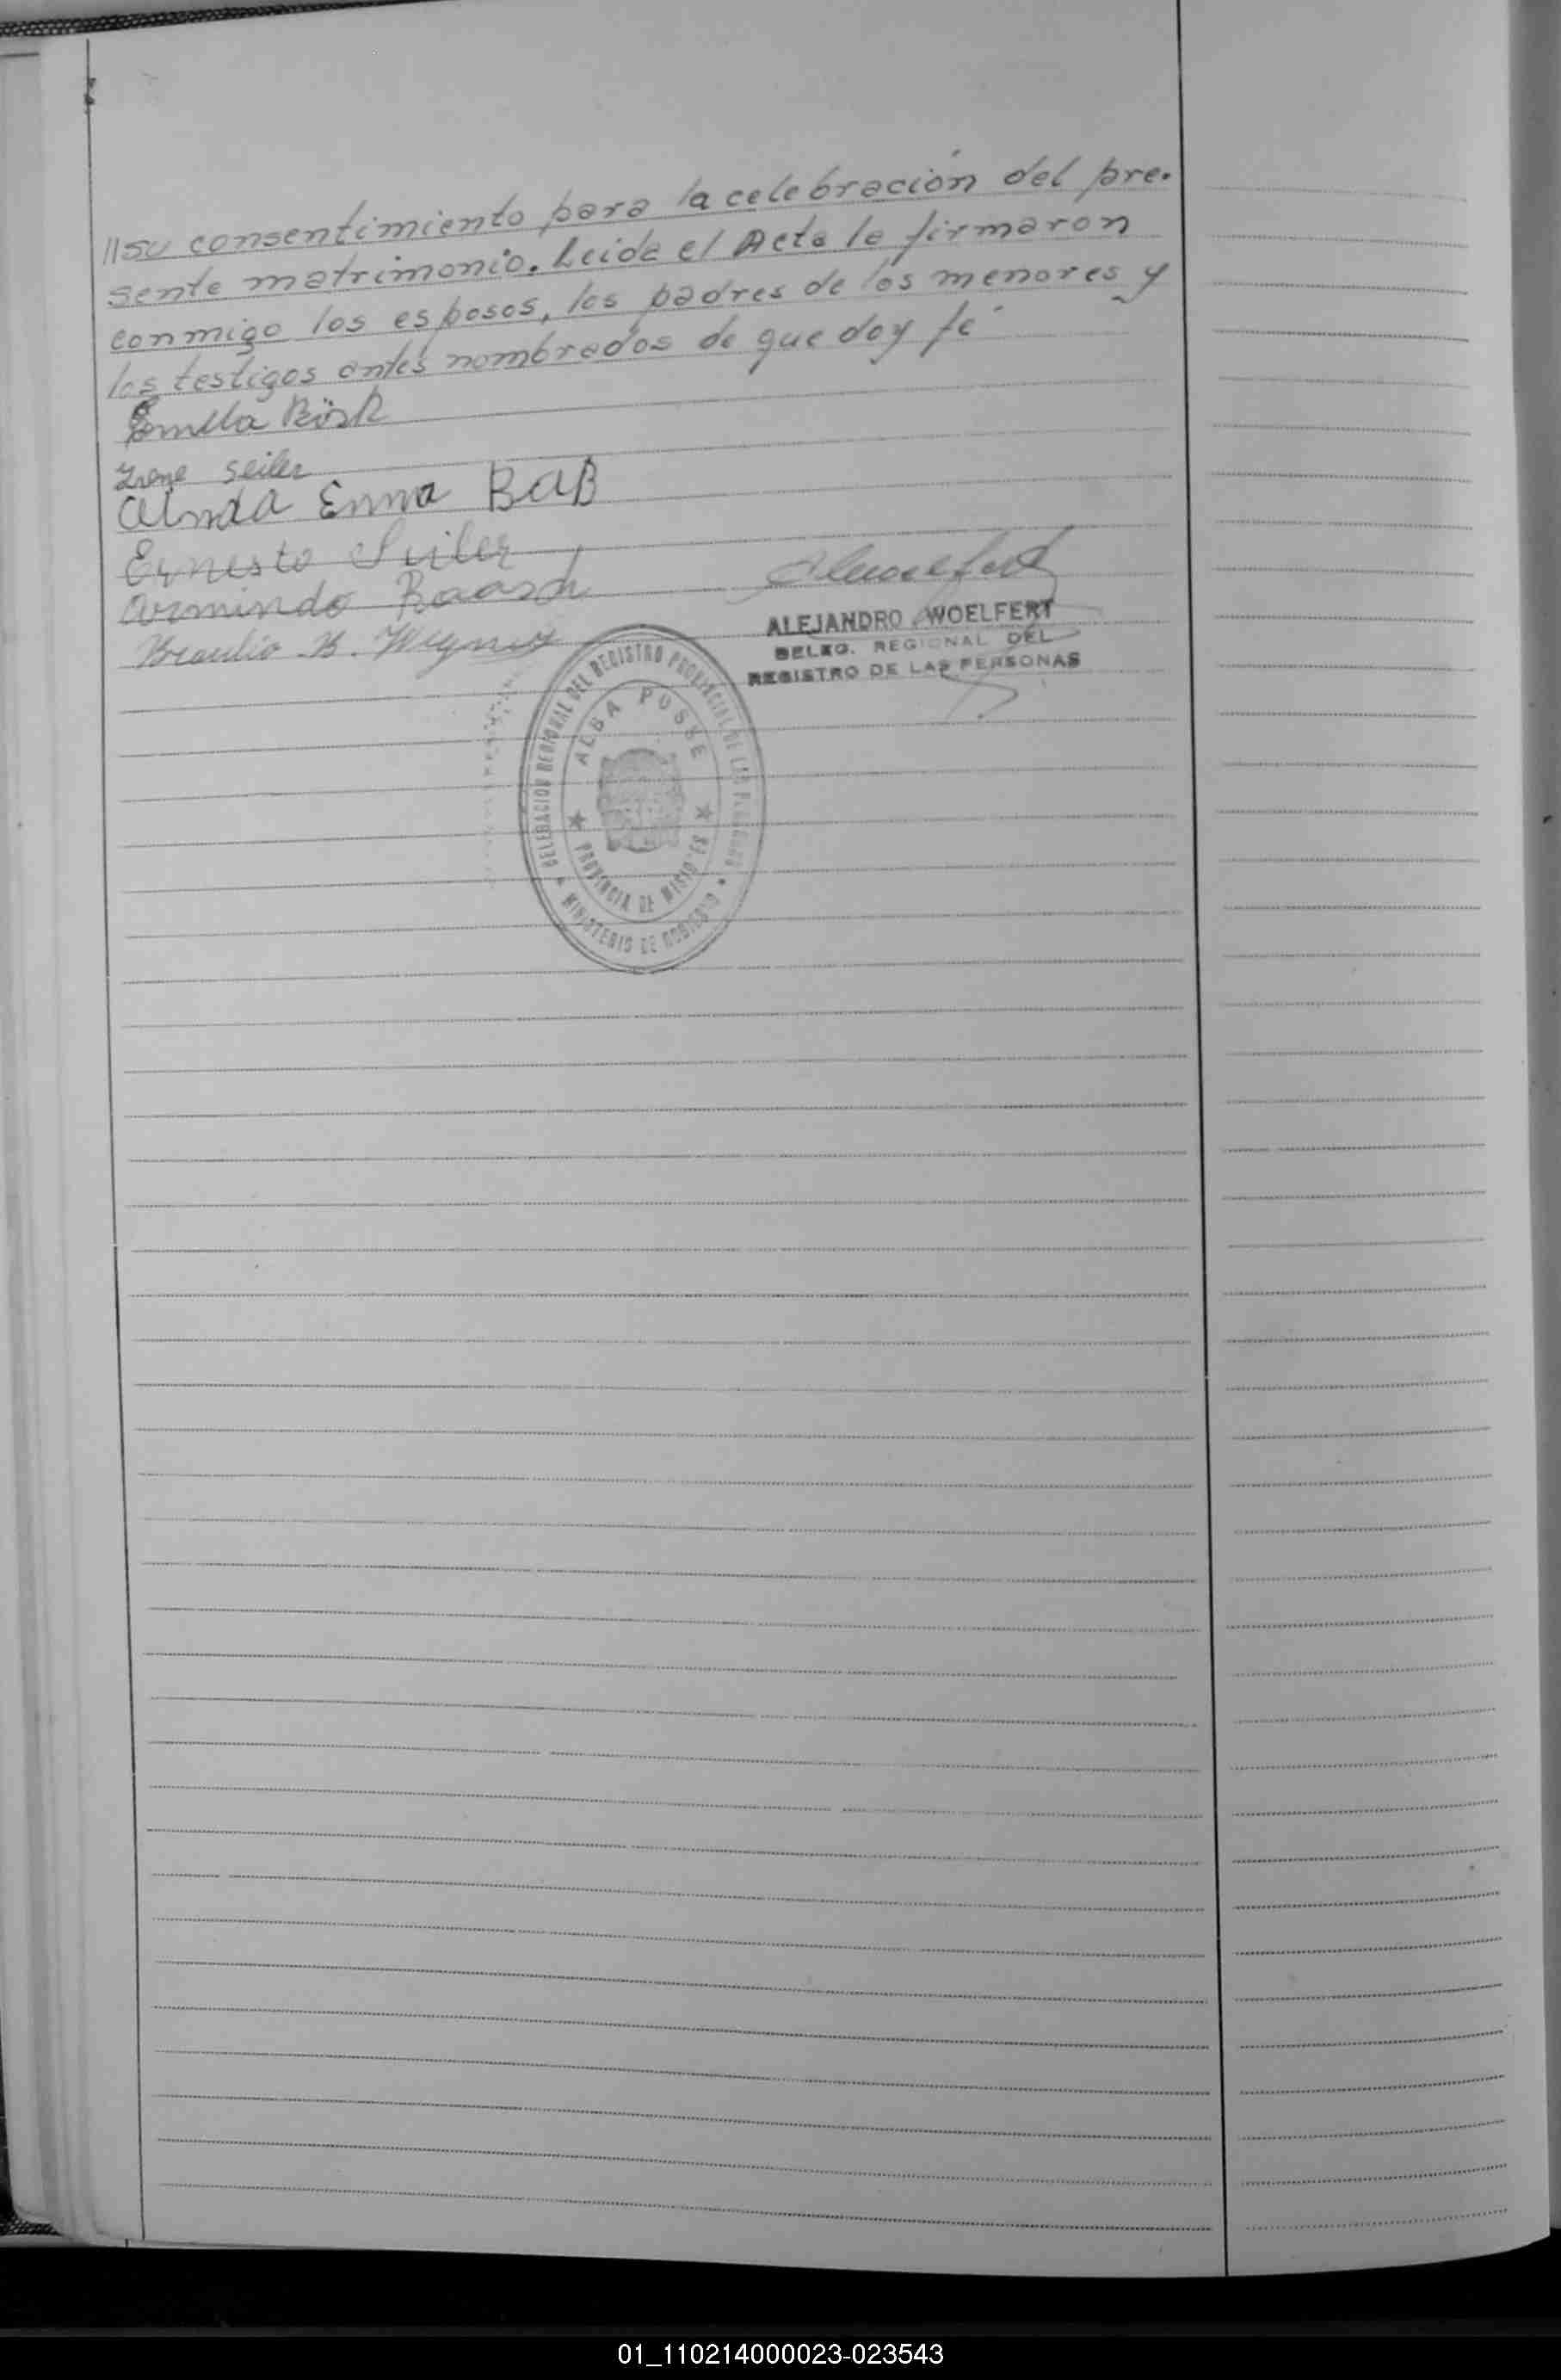 //su consentimiento para la celebración del pre-
sente matrimonio. Leida el Acta la firmaron
conmigo los esposos, los padres de los menores y
los testigos antes nombrados de que doy fé
Irene Seiler
Alnda Enna BAB
Ernesto Seiler
Armindo Raasch
Braulio B.
ALEJANDRO WOELFERT
DELEG. REGIONAL DEL
REGISTRO DE LAS PERSONAS
DELEGACION REGIONAL DEL REGISTRO PROVINCIAL DE LAS PERSONAS
ALBA POSSE
PROVINCIA DE MISIONES
MINISTERIO DE GOBIERNO
01_110214000023-023543